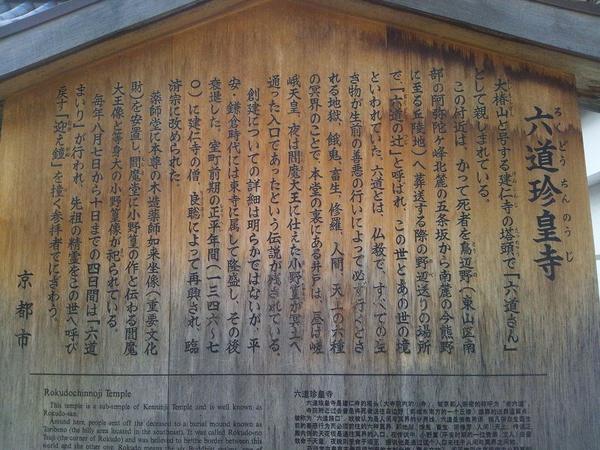 六道珍皇寺
ろくどうちんのうじ
大椿山と号する建仁寺の塔頭で「六道さん」
として親しまれている。
この付近は、かつて死者を鳥辺野(東山区南
部の阿弥陀ヶ峰北麓の五条坂から南麓の今熊野
に至る丘陵地)へ葬送する際の野辺送りの場所
で、「六道の辻」と呼ばれ、この世とあの世の境
といわれていた。六道とは、仏教で、すべての生
き物が生前の善悪の行いによって必ず行くとさ
れる地獄、餓鬼、畜生、修羅、人間、天上の六種
の冥界のことで、本堂の裏にある井戸は、昼は嵯
峨天皇、夜は閻魔大王に仕えた小野篁が冥土へ
通った入口であったという伝説が残されている。
創建についての詳細は明らかではないが、平
安・鎌倉時代には東寺に属して隆盛し、その後
衰退した。室町前期の正平年間(一三四六〜七
〇)に建仁寺の僧、良聡によって再興され、臨
済宗に改められた。
薬師堂に本尊の木造薬師如来坐像(重要文化
財)を安置し、閻魔堂に小野篁の作と伝わる閻魔
大王像と等身大の小野篁像が祀られている。
毎年八月七日から十日までの四日間は「六道
まいり」が行われ、先祖の精霊をこの世へ呼び
戻す「迎え鐘」を撞く参拝者でにぎわう。
京都市
Rokudochinnoji Temple
This temple is a sub-temple of Kenninji Temple and is well known as
Rokudo-san.
Around here, people sent off the deceased to a burial mound known as
Toribeno (the hilly area located in the southeast). It was called Rokudo-no
Tsuji (the corner of Rokudo) and was believed to be the border between this
world and the other one.
六道珍皇寺